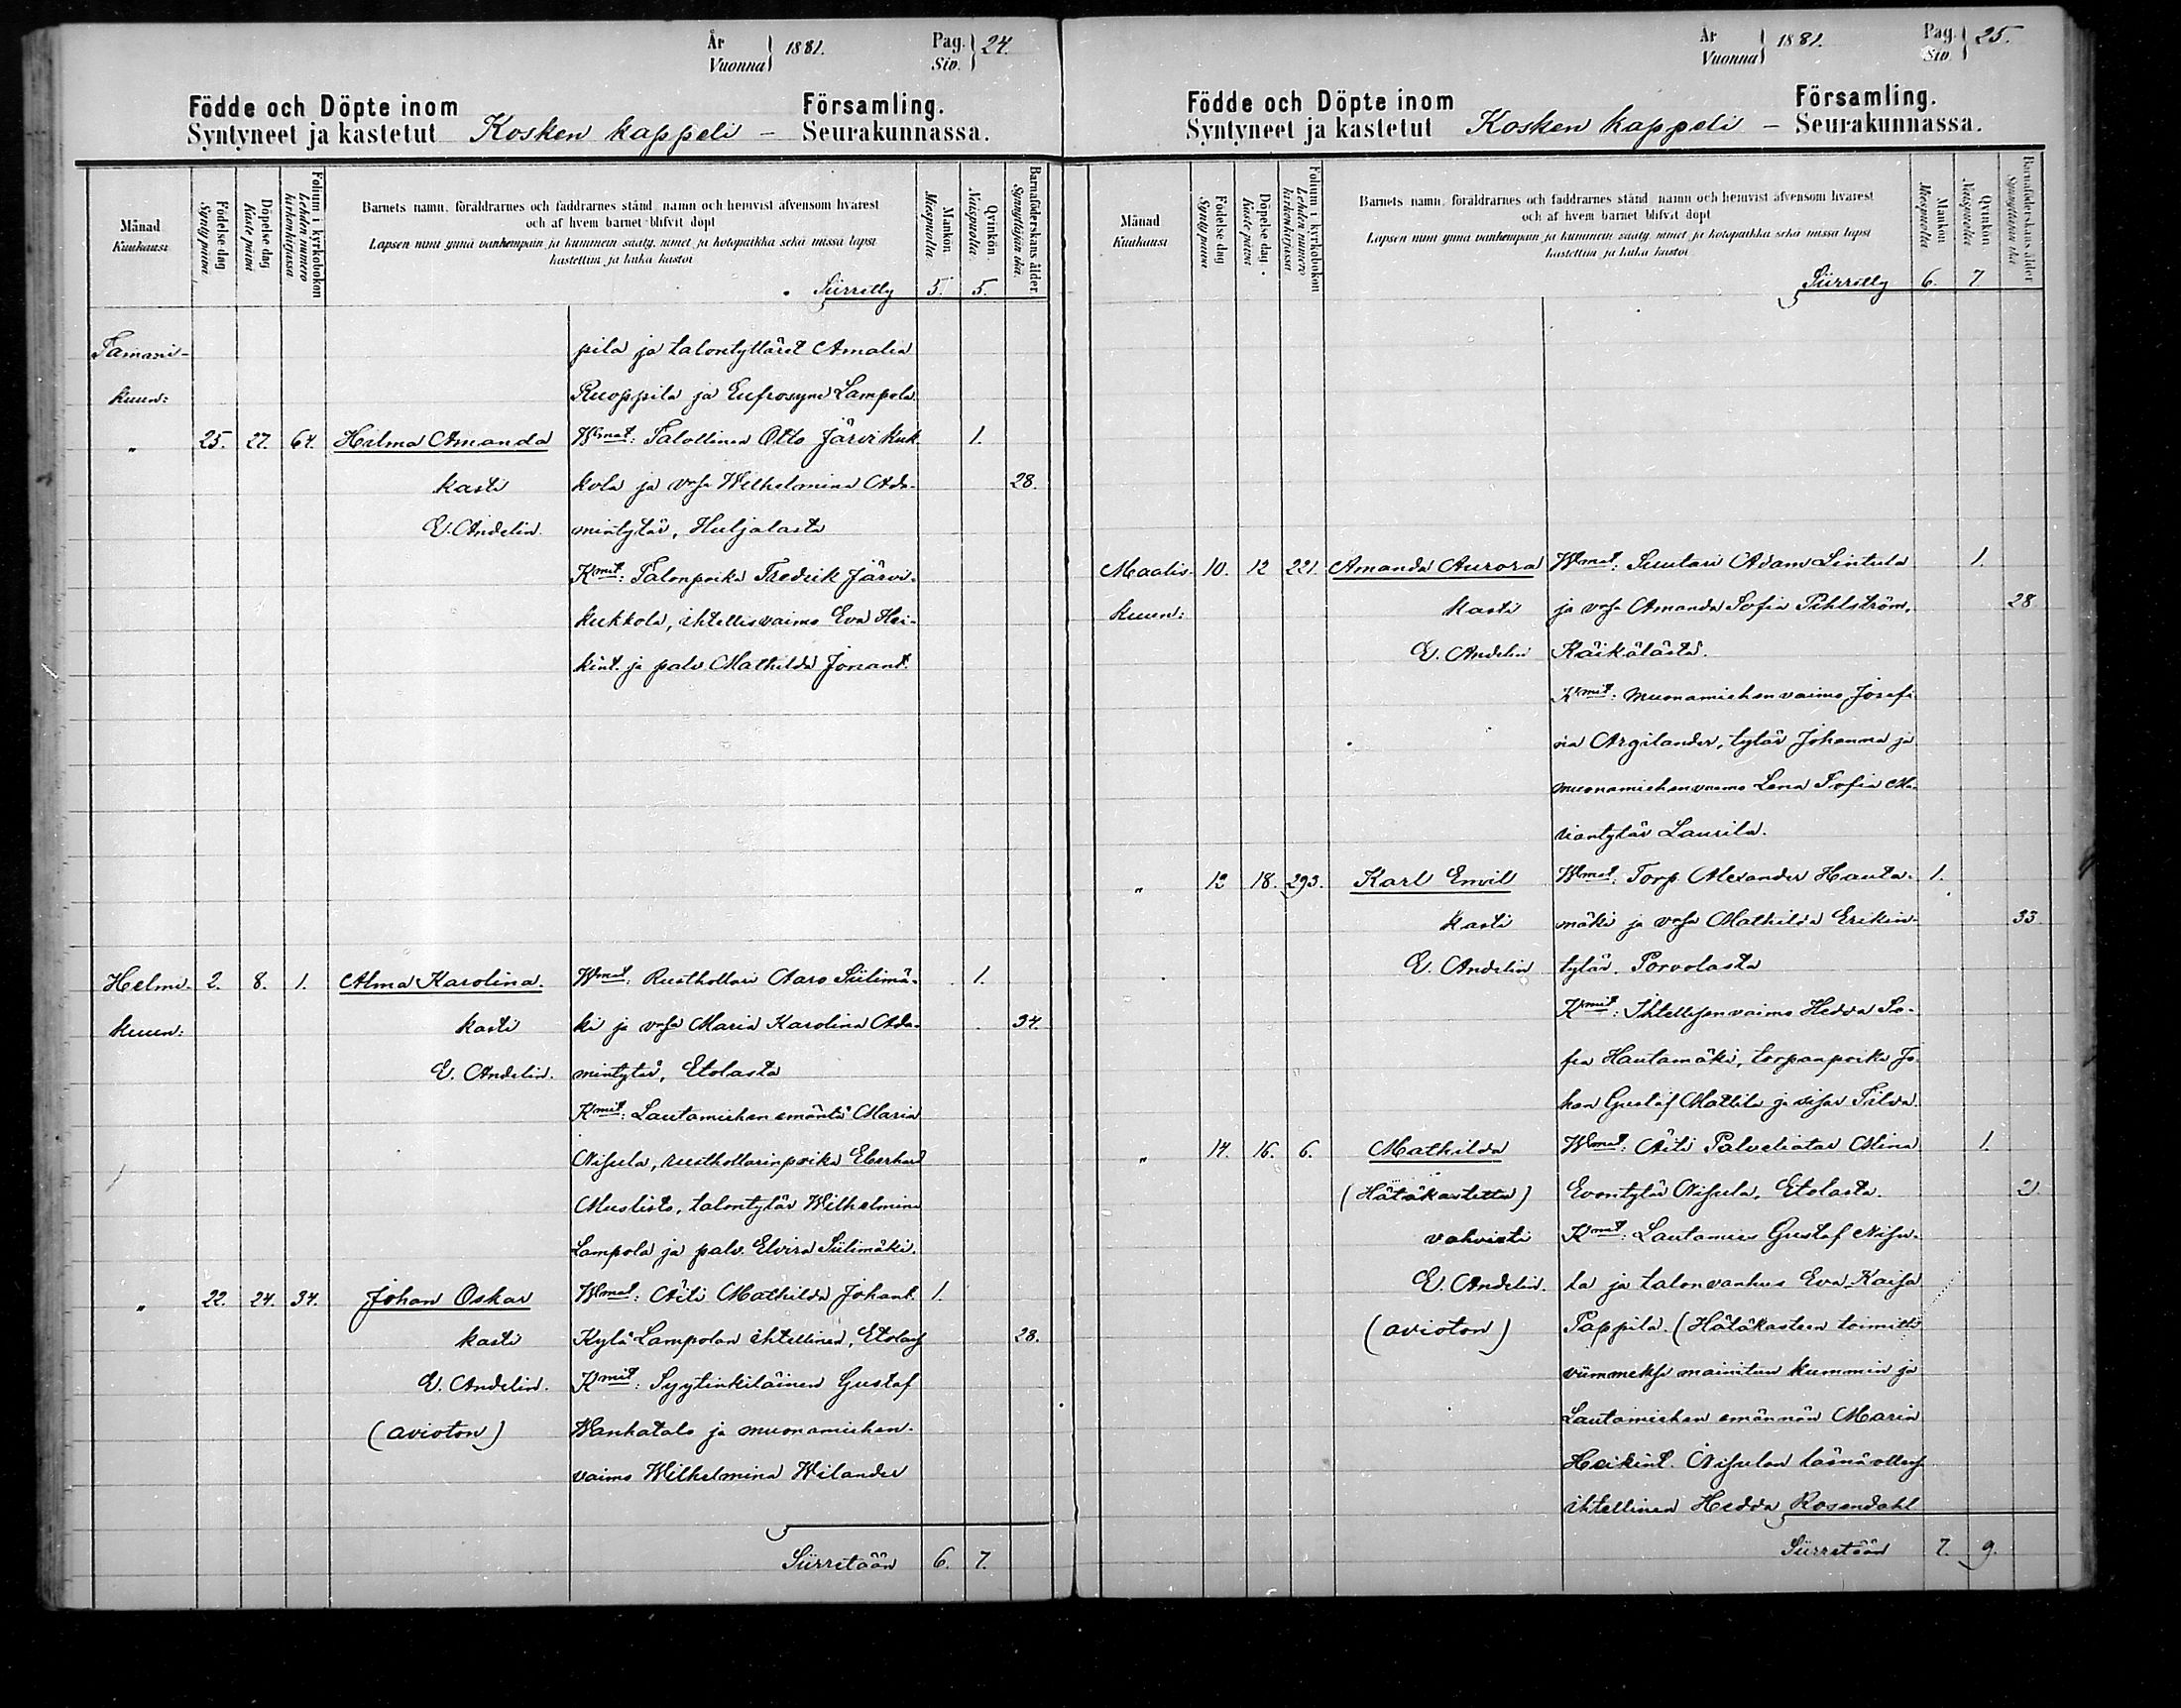 År
Vuonna
1881.
Pag.
Siv.
24.
Födde och Döpte inom
Församling.
Syntyneet ja kastetut Kosken kappeli – Seurakunnassa.
Månad
Kuukausi
Födelse dag
Synty päivä
Döpelse dag
Kaste päivä
Folium i kyrkoboken
Lehden numero kirkonkirjassa
Barnets namn, föräldrarnes och faddrarnes stånd, namn och hemvist äfvensom hvarest
och af hvem barnet blifvit döpt
Lapsen nimi ynnä vanhempain ja kummein sääty, nimet ja kotopaikka sekä missä lapsi
kastettiin ja kuka kastoi
Mankön
Miespuolia
Qvinkön
Naispuolia
Barnaföderskans ålder
Synnyttäjän ikä
Siirretty 5. 5.
Tamani-
pila ja talontyttäret Amalia
kuun:
Ruoppila ja Eufrosyne Lampola.
" 25. 27. 64. Hilma Amanda Wmat: Talollinen Otto Järvikuk- 1.
kasti kola ja vsa Wilhelmina Ada- 28.
E. Andelin. mintytär, Huljalasta
Kmit: Talonpoika Fredrik Järvi-
kukkola, ihtellisvaimo Eva Hei-
kint. ja palv. Mathilda Jonant.
Helmi- 2. 8. 1. Alma Karolina. Wmat: Rusthollari Aaro Siilimä- 1.
kuun: kasti ki ja vsa Maria Karolina Ada- 34.
E. Andelin. mintytär, Etolasta
Kmit: Lautamiehen emäntä Maria
Nisula, rusthollarinpoika Eberhard
Muslisto, talontytär Wilhelmina
Lampola ja palv. Elvira Siilimäki.
" 22. 24. 34. Johan Oskar Wmat: Äiti Mathilda Johant. 1.
kasti Kylä Lampolan ihtellinen, Etolas 28.
E. Andelin. Kmit: Syytinkiläinen Gustaf
(avioton) Wanhatalo ja muonamiehen-
vaimo Wilhelmina Wilander
Siirretään 6. 7.
År
Vuonna
1881.
Pag.
Siv.
25.
Födde och Döpte inom
Församling.
Syntyneet ja kastetut Kosken kappeli – Seurakunnassa.
Månad
Kuukausi
Födelse dag
Synty päivä
Döpelse dag
Kaste päivä
Folium i kyrkoboken
Lehden numero kirkonkirjassa
Barnets namn, föräldrarnes och faddrarnes stånd, namn och hemvist äfvensom hvarest
och af hvem barnet blifvit döpt
Lapsen nimi ynnä vanhempain ja kummein sääty, nimet ja kotopaikka sekä missä lapsi
kastettiin ja kuka kastoi
Mankön
Miespuolia
Qvinkön
Naispuolia
Barnaföderskans ålder
Synnyttäjän ikä
Siirretty 6. 7
Maalis- 10. 12 221. Amanda Aurora Wmat: Suutari Adam Lintula 1.
kuun: kasti ja vsa Amanda Sofia Pihlström, 28
E. Andelin Käikälästä.
Kmit: Muonamiehenvaimo Josefi-
na Argilander, tytär Johanna ja
muonamiehenvaimo Lena Sofia Ma-
riantytär Laurila.
" 12 18. 293. Karl Emvil Wmat: Torp. Alexander Hauta- 1.
kasti mäki ja vsa Mathilda Erikin- 33.
E. Andelin tytär. Porvolasta
Kmit: Ihtellisenvaimo Hedda So-
fia Hautamäki, torpanpoika Jo-
han Gustaf Mattila ja sisar Silva.
" 14. 16. 6. Mathilda Wmat: Äiti Palveliatar Miina 1.
(Hätäkastettu) Evantytär Nisula, Etolasta.
vahvisti Kmit: Lautamies Gustaf Nisu-
E. Andelin. la ja talonvanhus Eva Kaisa
(avioton) Pappila. (Hätäkasteen toimitti
viimmeksi mainitun kummin ja
Lautamiehen emännän Maria
Heikint. Nisulan läsnäolless
ihtellinen Hedda Rosendahl
Siirretään 7. 9.